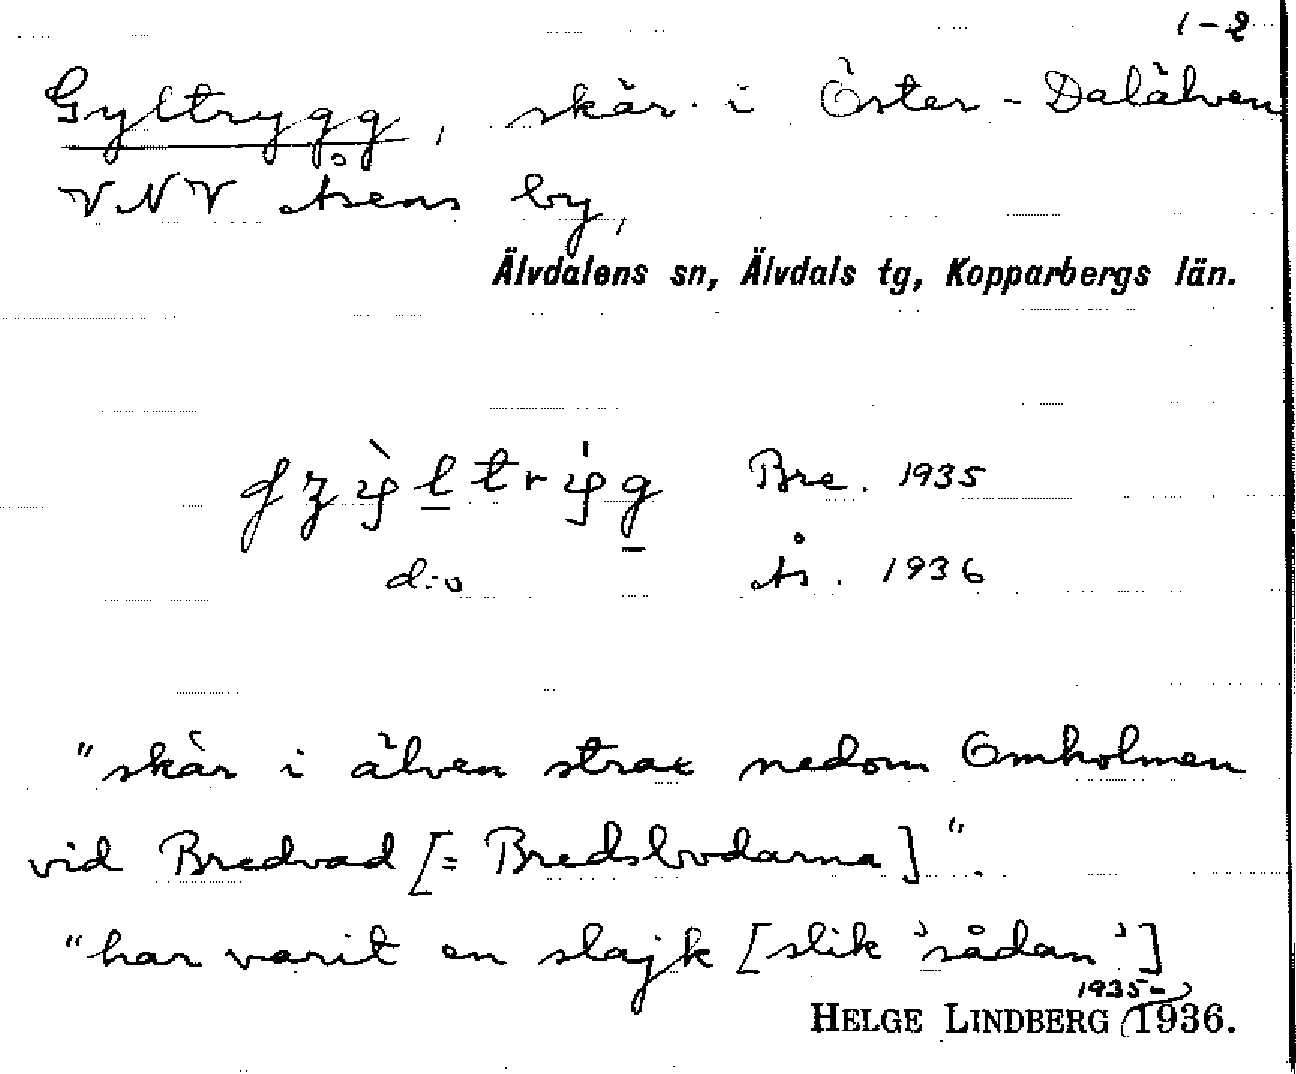 1-2
Gyltrygg, skär i Öster-Dalälven
VNV Åsens by,
Älvdalens sn, Älvdals tg, Kopparbergs län.
Bre. 1935
d:o Ås. 1936
"skär i älven strax nedom Omholmen
vid Bredvad [= Bredsbodarna]".
"har varit en slajk [slik 'sådan']
1935-
HELGE LINDBERG 1936.